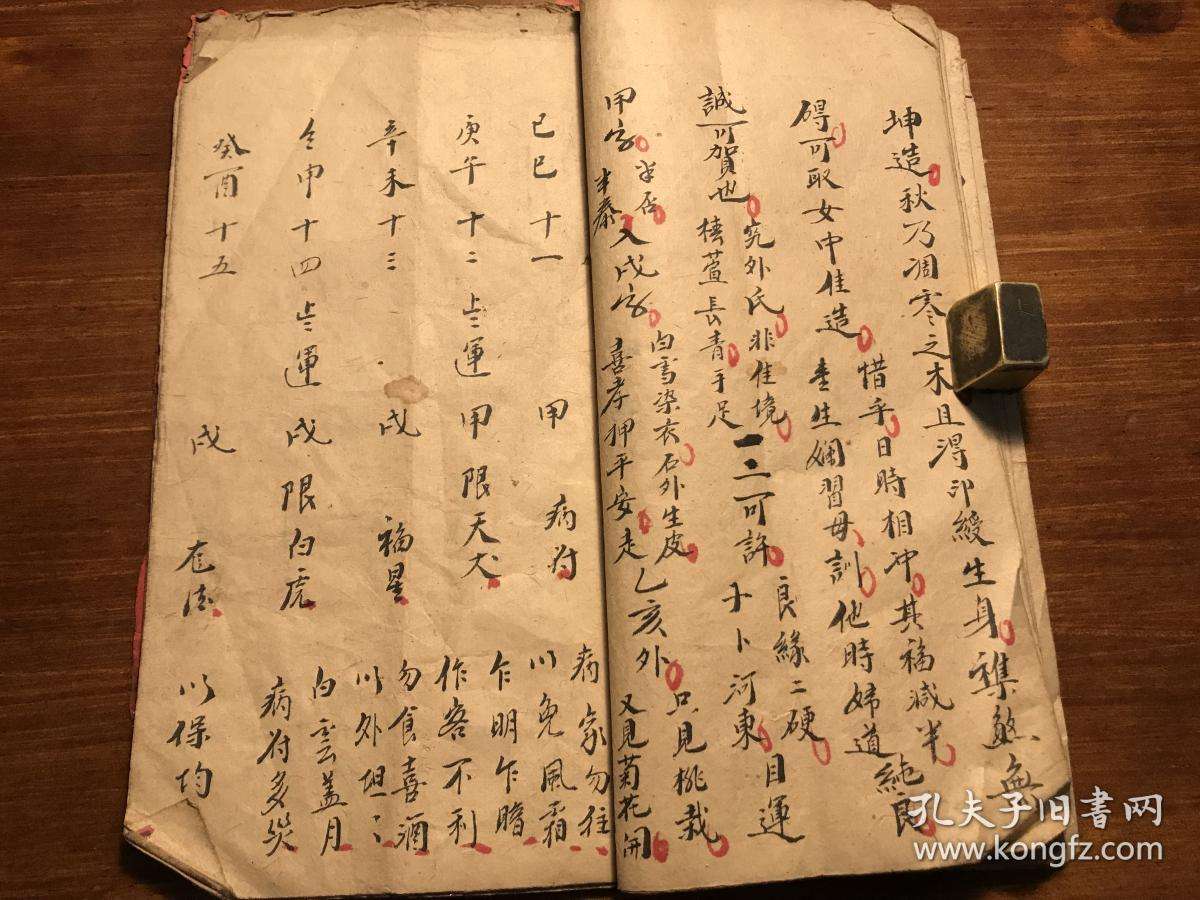 坤造秋乃凋零之木且得印綬生身雜煞無
碍可取女中佳造惜乎日時相冲其福減半
幸生嫻習母訓他時婦道純良
誠可賀也究外氏非佳境
椿萱長青手足一二可許良緣二硬
卜河東目運
甲字半否半泰入戌字白雪染衣石外生皮
喜孝押平安走乙亥外只見桃栽
又見菊花開
己巳十一 甲 病符 病家勿往
以免風霜
庚午十二 上運 甲 限天犬 乍明乍暗
作客不利
辛未十三 戌 福星 勿食喜酒
以外坦二
壬申十四 上運 戌 限白虎 白雲盖月
病符多災
癸酉十五 戌 以保均
孔夫子旧书网
www.kongfz.com